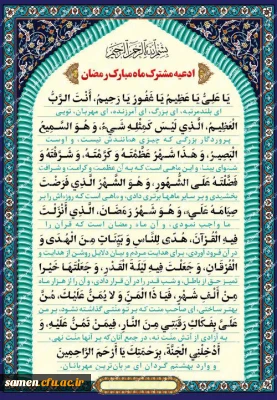 بسم الله الرحمن الرحیم
ادعیه مشترک ماه مبارک رمضان
يَا عَلِيُّ يَا عَظِيمُ يَا غَفُورُ يَا رَحِيمُ، أَنْتَ الرَّبُّ
ای بلندمرتبه، ای بزرگ، ای آمرزنده، ای مهربان، تویی
الْعَظِيمُ، الَّذِي لَيْسَ كَمِثْلِهِ شَيْءٌ، وَ هُوَ السَّمِيعُ
پروردگار بزرگی که چیزی همانندش نیست، و اوست
الْبَصِيرُ، وَ هَذَا شَهْرٌ عَظَّمْتَهُ وَ كَرَّمْتَهُ، وَ شَرَّفْتَهُ وَ
شنوای بینا، و این ماهی است که به آن عظمت و کرامت و شرافت
فَضَّلْتَهُ عَلَى الشُّهُورِ، وَ هُوَ الشَّهْرُ الَّذِي فَرَضْتَ
بخشیدی و بر سایر ماهها برتری دادی، و ماهی است که روزه‌اش را بر
صِيَامَهُ عَلَيَّ، وَ هُوَ شَهْرُ رَمَضَانَ، الَّذِي أَنْزَلْتَ
ما واجب نمودی، و آن ماه رمضان است که قرآن را
فِيهِ الْقُرْآنَ، هُدًى لِلنَّاسِ وَ بَيِّنَاتٍ مِنَ الْهُدَى وَ
در آن فرود آوردی، برای هدایت مردم و بیان دلایل روشن از هدایت و
الْفُرْقَانِ، وَ جَعَلْتَ فِيهِ لَيْلَةَ الْقَدْرِ، وَ جَعَلْتَهَا خَيْرًا
تمیز حق از باطل، و شب قدر را در آن قرار دادی، و آن را از هزار ماه
مِنْ أَلْفِ شَهْرٍ، فَيَا ذَا الْمَنِّ وَ لَا يُمَنُّ عَلَيْكَ، مُنَّ
بهتر ساختی، ای صاحب منت که بر تو منتی گذاشته نشود، بر من
عَلَيَّ بِفَكَاكِ رَقَبَتِي مِنَ النَّارِ، فِيمَنْ تَمُنُّ عَلَيْهِ، وَ
به آزادی از آتش منت نه، در جمع آنان که بر آنها منت نهی،
أَدْخِلْنِي الْجَنَّةَ، بِرَحْمَتِكَ يَا أَرْحَمَ الرَّاحِمِينَ
و وارد بهشتم گردان ای مهربان‌ترین مهربانان.
samen.cfu.ac.ir